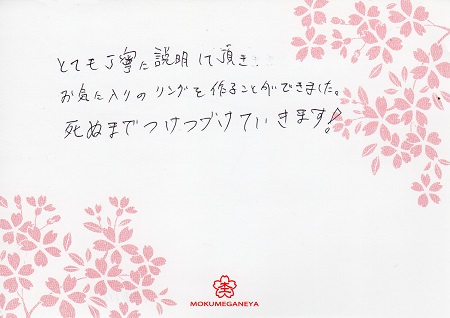 とても丁寧に説明して頂き、
お気に入りのリングを作ることができました。
死ぬまでつけつづけていきます!
杢
MOKUMEGANEYA